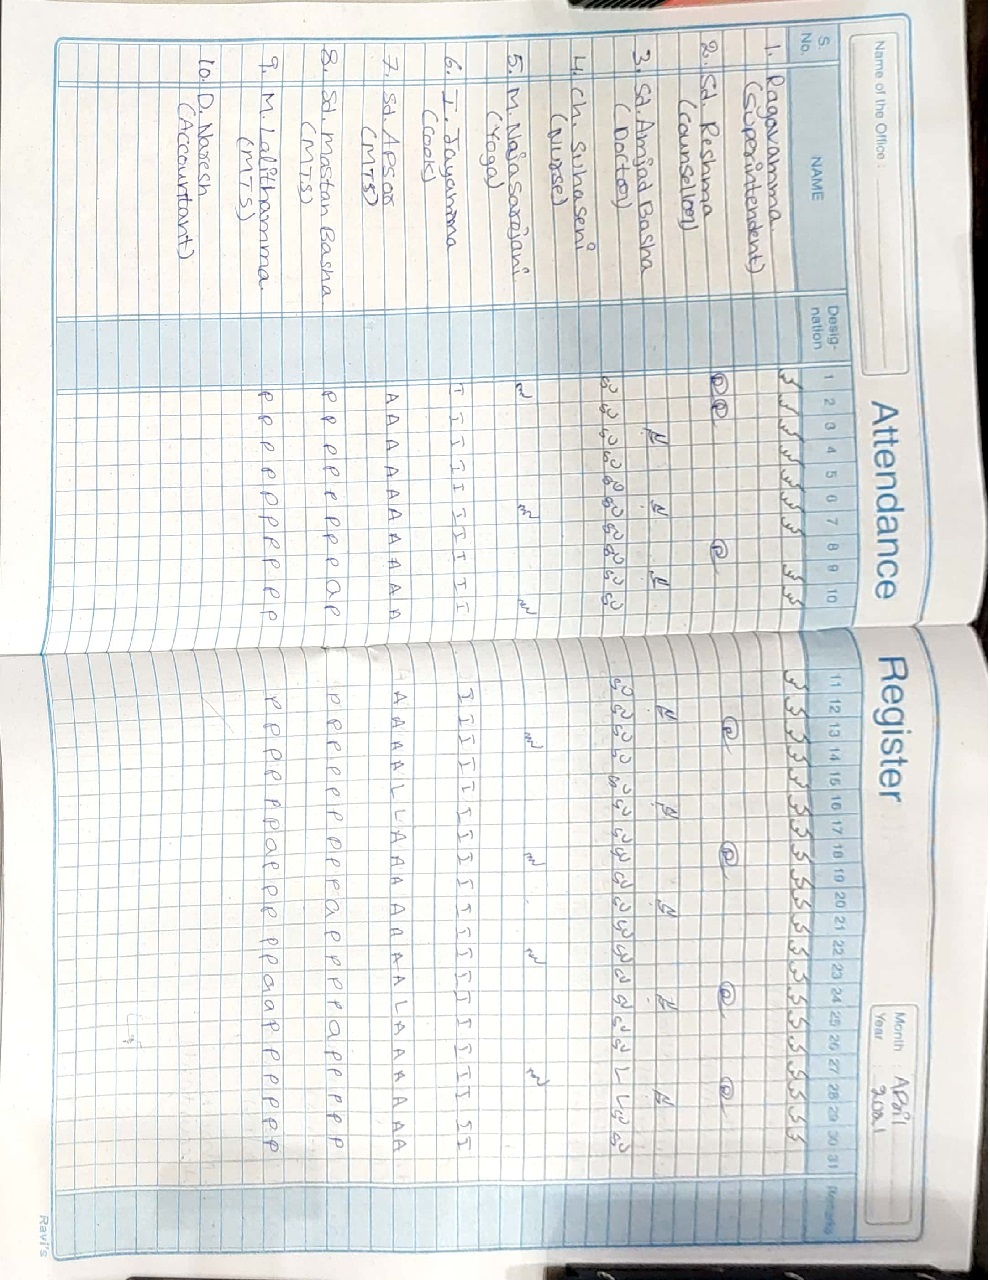 Name of the Office :
Attendance Register
Month April
Year 2021
S. No. NAME Desig-nation 1 2 3 4 5 6 7 8 9 10 11 12 13 14 15 16 17 18 19 20 21 22 23 24 25 26 27 28 29 30 31 Remarks
1. Ragavamma
(Superintendent)
2. Sd. Reshma
(counselloor)
3. Sd. Amjad Basha
(Doctor)
4. Ch. Suhaseni
(Nurse)
5. M. Naja Sarojani
(Yoga)
6. I. Jayamma I I I I I I I I I I I I I I I I I I I I I I I I I I I I I I
(Cook)
7. Sd. APSar A A A A A A A A A A A A A A L L A A A A A A A L A A A A A A
(MTS)
8. Sd. Mastan Basha P P P P P P P P a P P P P P P P P P P a P P P P a P P P P P
(MTS)
9. M. Lalithamma P P P P P P P P P P P P P P P P a P P P P a a P P P P P P P
(MTS)
10. D. Naresh
(Accountant)
Ravi's